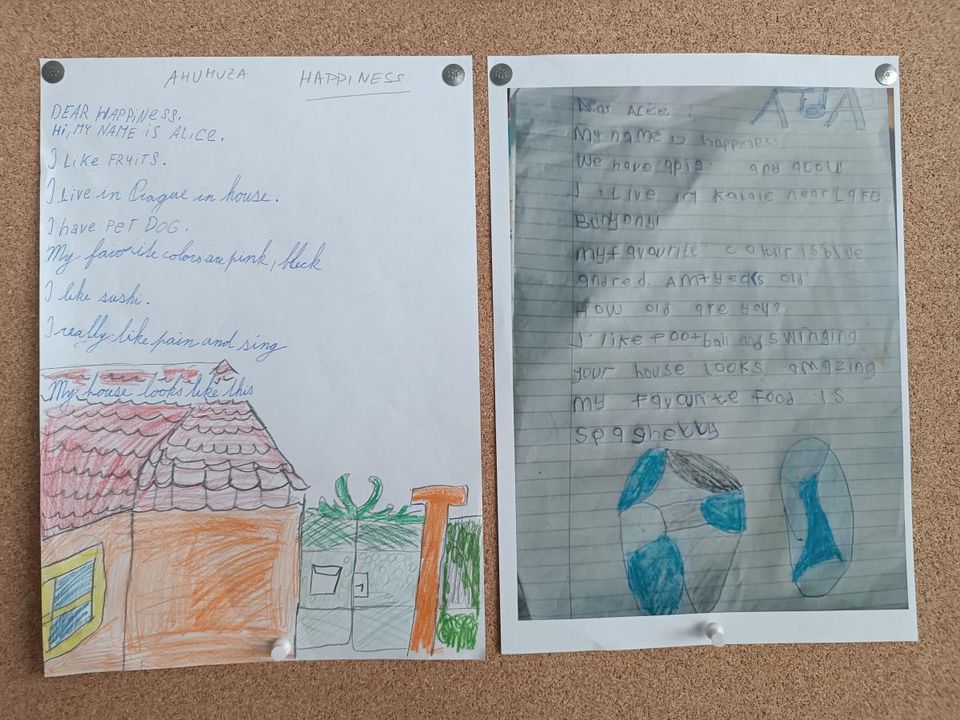 AHUMUZA HAPPINESS
DEAR HAPPINESS.
HI, MY NAME IS ALICE.
I LIKE FRUITS.
I Live in Prague in house.
I have PET DOG.
My favorite colors are pink, black
I like sushi.
I really like pain and sing
My house looks like this
Dear Alice:
My name is happiness
We have apig and acow
I Live in Kabale near Lake
Bunyonyi
my favourite colour is blue
and red. Am 7 years old
HOW old are you?
I like football and swinging
your house looks amazing
my favourite food is
spaghetty